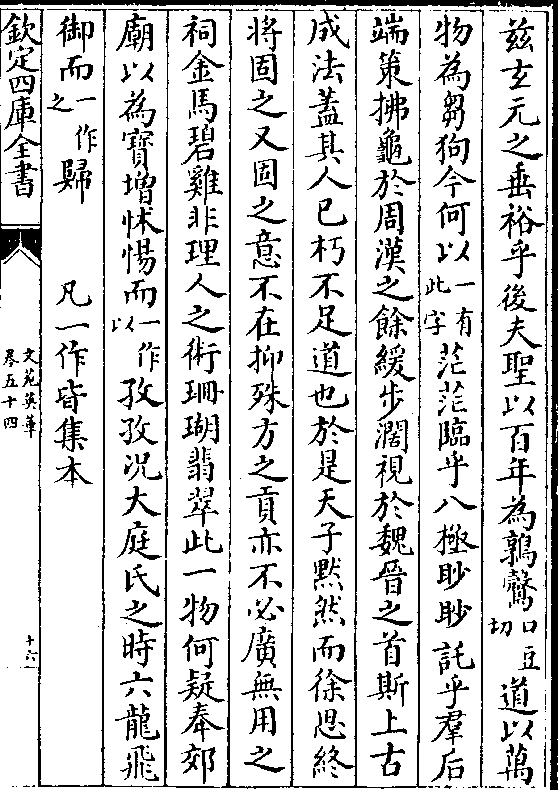 兹玄元之垂裕乎後夫聖以百年為鶉鷇口豆切道以萬
物為芻狗今何以一有此字茫茫臨乎八極眇眇託乎羣后
端策拂龜於周漢之餘緩步濶視於魏晉之首斯上古
成法蓋其人已朽不足道也於是天子黙然而徐思終
將固之又固之意不在抑殊方之貢亦不必廣無用之
祠金馬碧雞非理人之術珊瑚翡翠此一物何疑奉郊
廟以為寳增怵惕而一作以孜孜况大庭氏之時六龍飛
御而一作之歸 凡一作皆集本
欽定四庫全書
文苑英華
卷五十四
十六